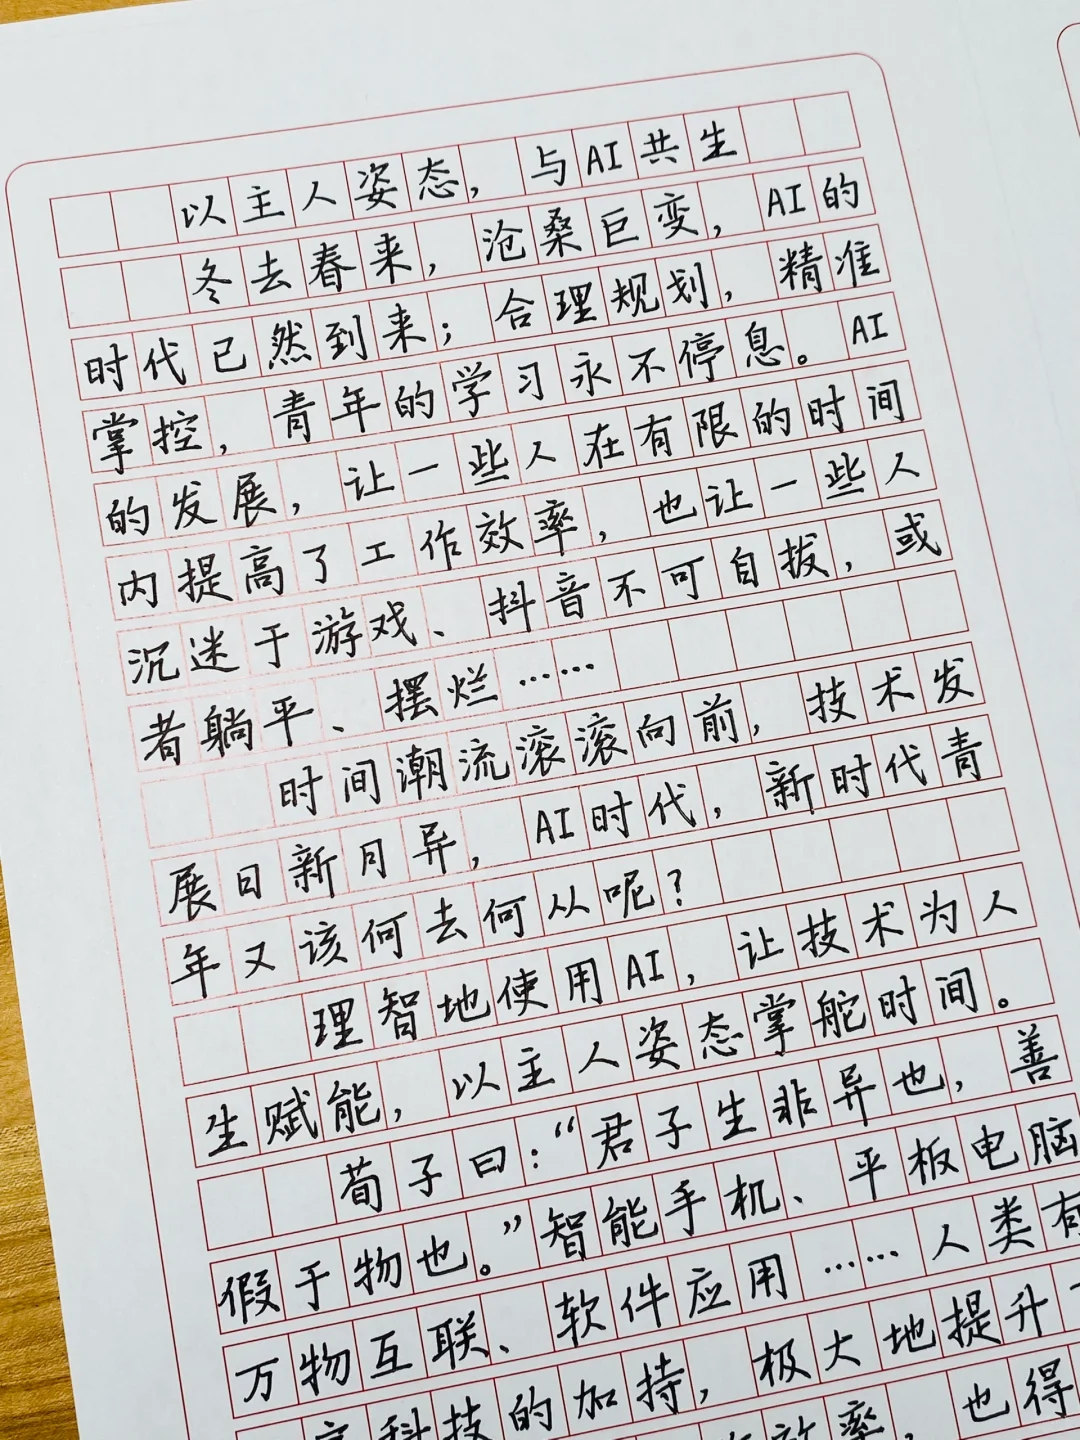 以主人姿态，与AI共生
冬去春来，沧桑巨变，AI的
时代已然到来；合理规划，精准
掌控，青年的学习永不停息。AI
的发展，让一些人在有限的时间
内提高了工作效率，也让一些人
沉迷于游戏、抖音不可自拔，或
者躺平、摆烂……
时间潮流滚滚向前，技术发
展日新月异，AI时代，新时代青
年又该何去何从呢？
理智地使用AI，让技术为人
生赋能，以主人姿态掌舵时间。
荀子曰：“君子生非异也，善
假于物也。”智能手机、平板电脑
万物互联、软件应用……人类有
科技的加持，极大地提升
效率，也得